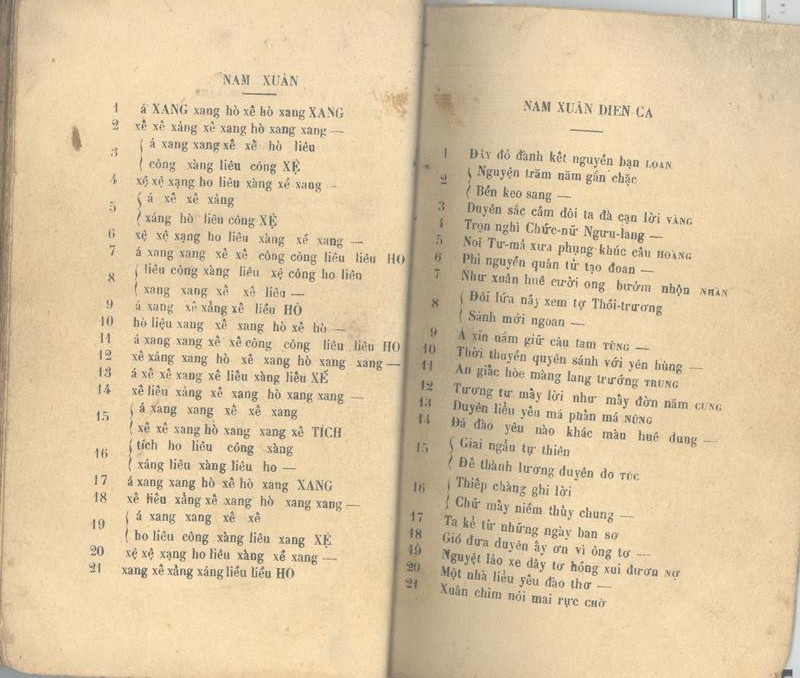 NAM XUÂN
1 á XANG xang hò xê hò xang XANG
2 xê xê xảng xê xang hò xang xang —
3 á xang xang xê xê hò liêu
công xàng liêu công XỆ
4 xệ xệ xạng ho liêu xàng xế xang -
5 á xê xê xảng
xáng hò liêu công XỆ
6 xệ xệ xạng ho liêu xàng xế xang —
7 á xang xang xê xê công công liêu liêu HO
8 liêu công xàng liêu xệ công ho liêu
xang xang xê xê liêu —
9 á xang xê xảng xê liếu HÒ
10 hò liệu xang xê xang hò xê hò —
11 á xang xang xê xê công công liêu liêu HO
12 xê xáng xang hò xê xang hò xang xang —
13 á xê xê xang xê liêu xàng liêu XẾ
14 xê liêu xảng xê xang hò xang xang —
15 á xang xang xê xê xang
xê xê xang hò xang xang xê TÍCH
16 tích ho liêu công xàng
xáng liêu xàng liêu ho —
17 á xang xang hò xê hò xang XANG
18 xê liêu xảng xê xang hò xang xang —
19 á xang xang xê xê
ho liêu công xàng liêu xang XỆ
20 xệ xệ xạng ho liêu xàng xế xang —
21 xang xê xảng xáng liếu liếu HÒ
NAM XUÂN DIEN CA
1 Đây đó đành kết nguyền bạn LOAN
2 Nguyện trăm năm gắn chặc
Bền keo sang —
3 Duyên sắc cầm đôi ta đà cạn lời VÀNG
4 Trọn nghì Chức-nữ Ngưu-lang —
5 Noi Tư-mã xưa phụng khúc cầu HOÀNG
6 Phỉ nguyền quân tử tạo đoan —
7 Như xuân huê cười ong bướm nhộn NHÀN
8 Đôi lứa nầy xem tợ Thôi-trương
Sánh mới ngoan —
9 A xin nắm giữ câu tam TÙNG —
10 Thời thuyền quyên sánh với yên hùng —
11 An giấc hòe màng lang trướng TRUNG
12 Tương tư mầy lời như mầy đờn năm CUNG
13 Duyên liễu yếu má phấn má NÙNG
14 Đá đào yêu nào khác màu huê dung —
15 Giai ngẫu tự thiên
Đề thành lương duyên do TÚC
16 Thiếp chàng ghi lời
Chữ mầy niềm thủy chung —
17 Ta kể từ những ngày ban sơ
18 Gió đưa duyên ấy ơn vì ông tơ —
19 Nguyệt lão xe dây tơ hồng xui đươn NỢ
20 Một nhà liễu yếu đào thơ —
21 Xuân chim nói mai rực CHỜ